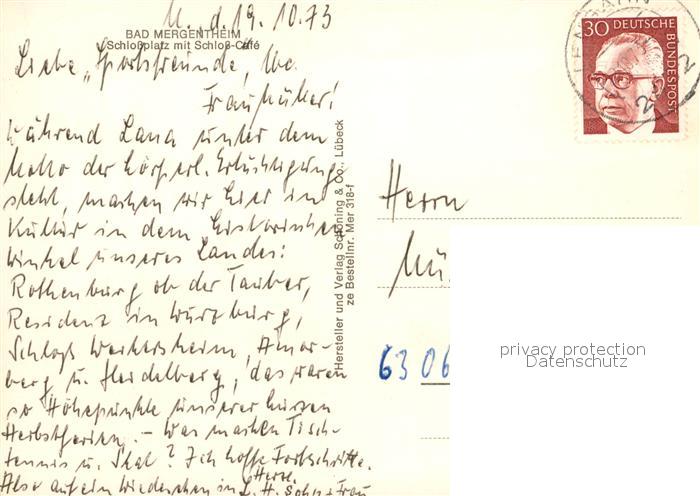 M., d. 19.10.73
BAD MERGENTHEIM
Schloßplatz mit Schloß-Café
Liebe "Sportsfreunde,
Frau Müller!
Während Lana unter dem
Motto der körperl. Ertüchtigung
steht, machen wir hier in
Kultur in dem historischen
Winkel unseres Landes:
Rothenburg ob der Tauber,
Residenz in Würzburg,
Schloß Weikersheim, Amor-
berg u. Heidelberg, das waren
so Höhepunkte unserer kurzen
Herbstferien. - Was machen Tisch-
tennis u. Skat? Ich hoffe Fortschritte.
Also auf ein Wiedersehen in
Herzl.
Frau
Hersteller und Verlag Schöning & Co., Lübeck
ze Bestellnr. Mer 318-f
30 DEUTSCHE BUNDESPOST
Herrn
Mü
6306
privacy protection
Datenschutz